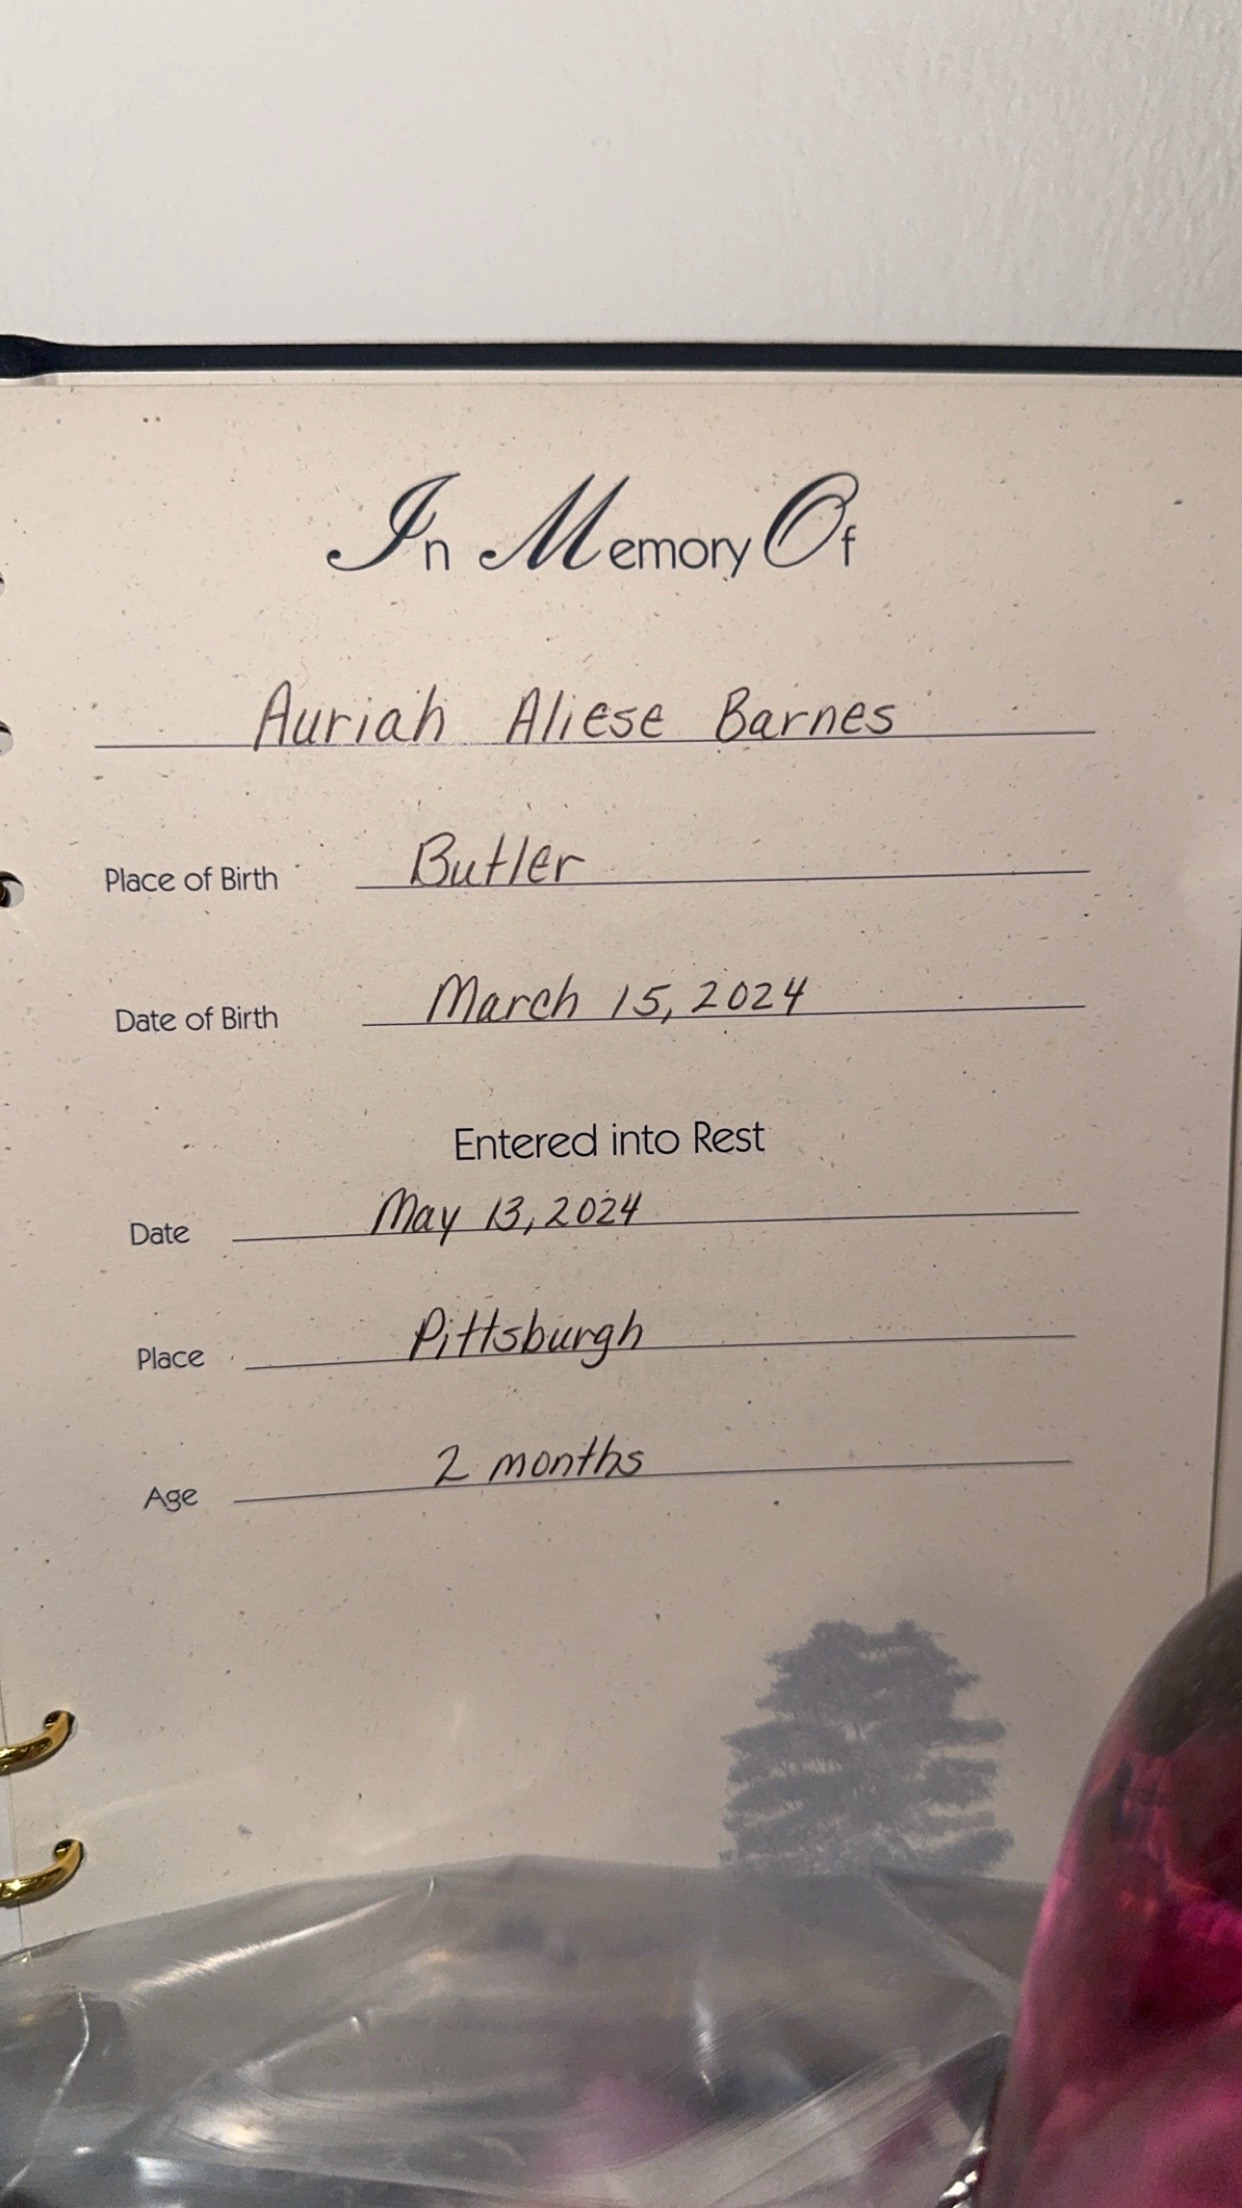 In Memory Of
Auriah Aliese Barnes
Place of Birth Butler
Date of Birth March 15, 2024
Entered into Rest
Date May 13, 2024
Place Pittsburgh
Age 2 months